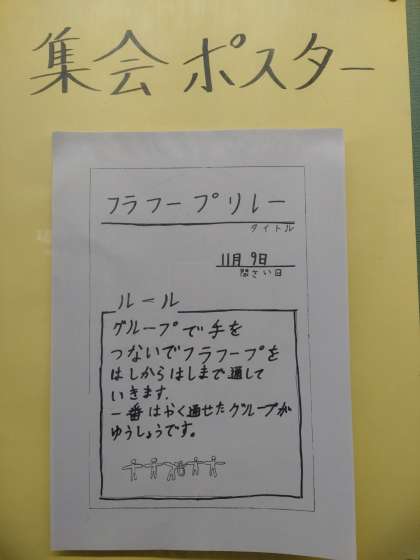 集会ポスター
フラフープリレー
タイトル
11月9日
開さい日
ルール
グループで手を
つないでフラフープを
はしからはしまで通して
いきます.
一番はやく通せたグループが
ゆうしょうです。